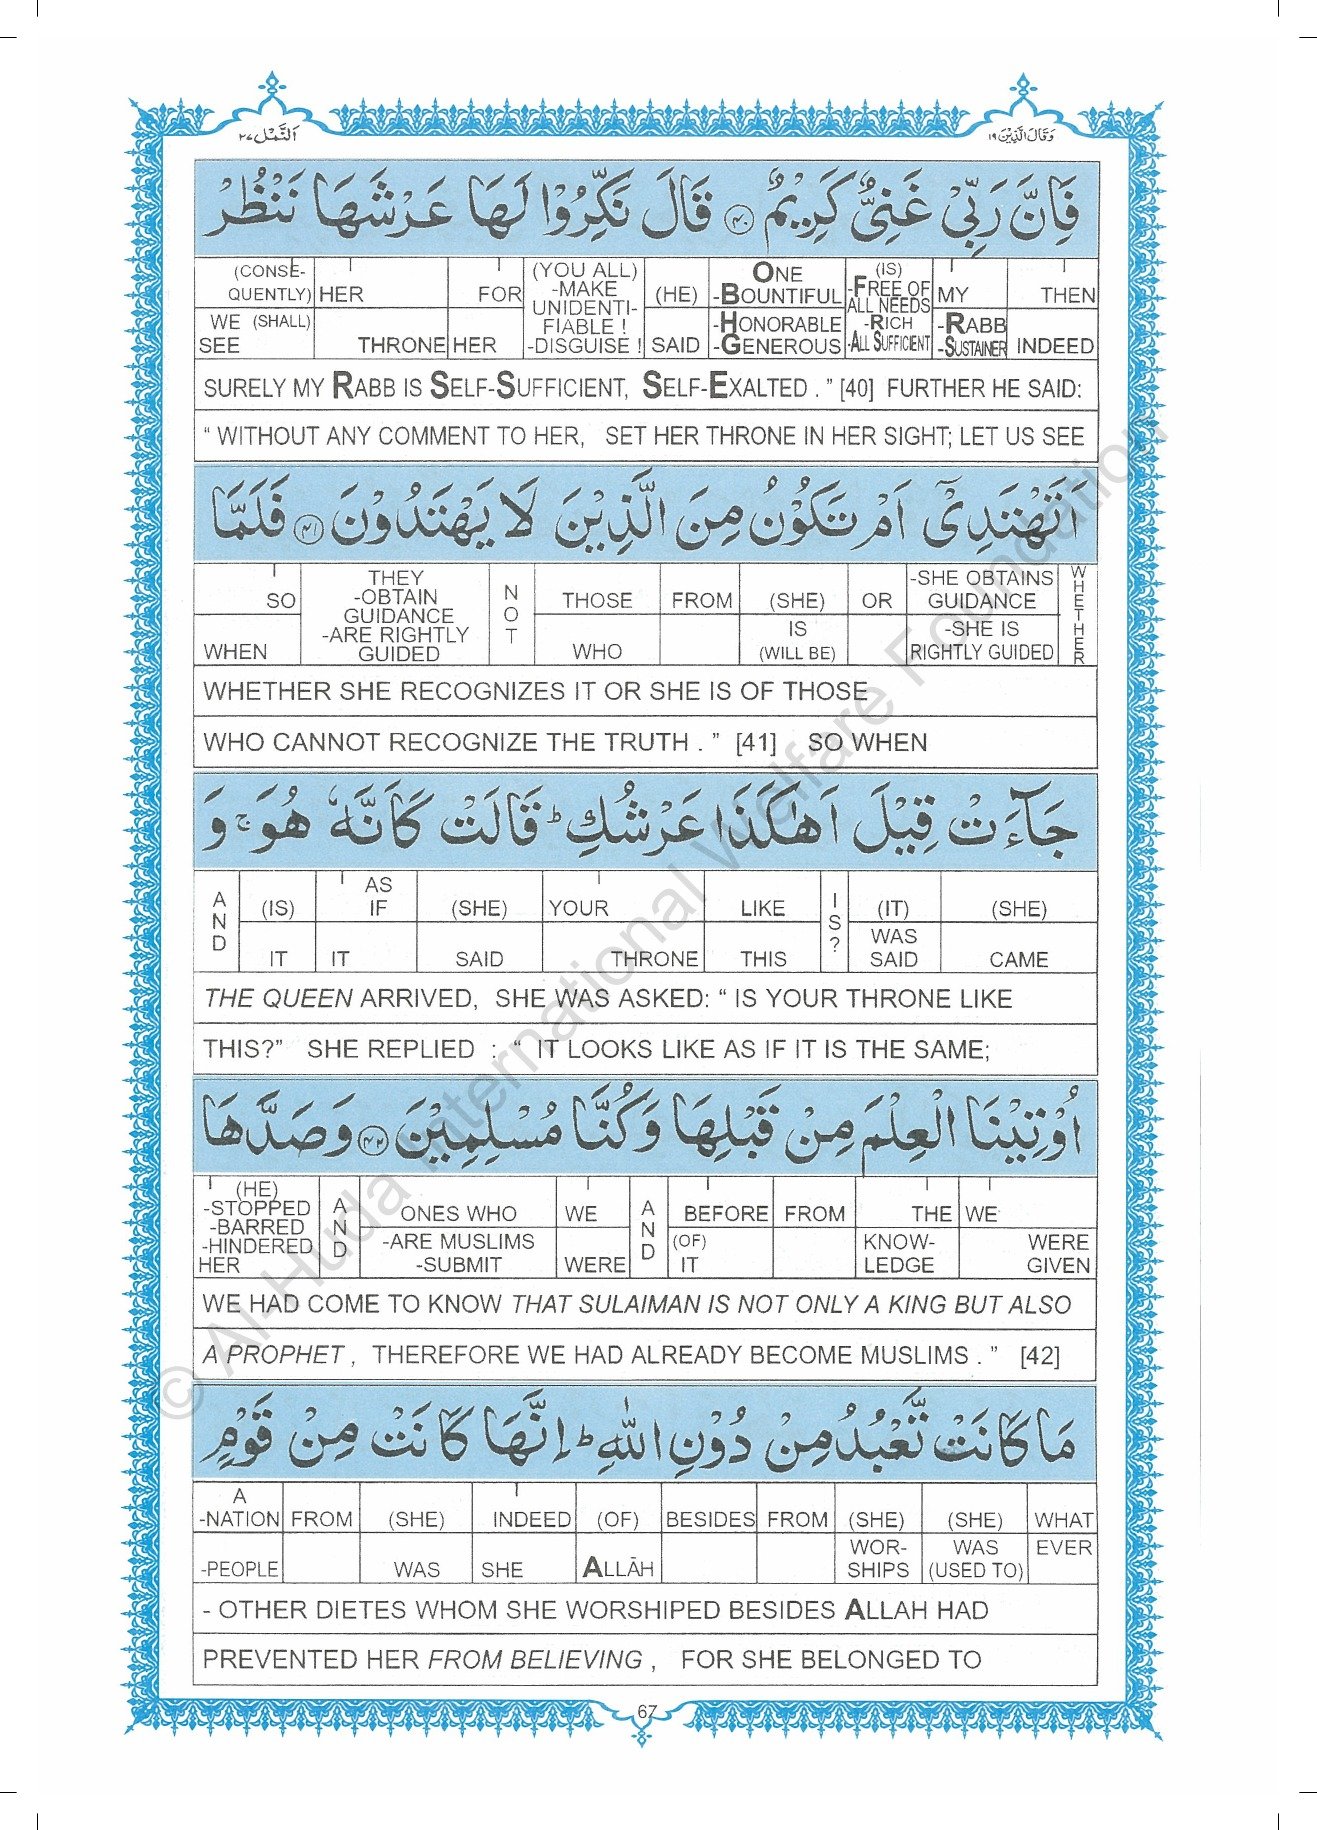 اَلنَّمْل ٢٧
وَقَالَ الَّذِيْنَ ١٩
فَاِنَّ رَبِّيْ غَنِيٌّ كَرِيْمٌ ﴿٤٠﴾ قَالَ نَكِّرُوْا لَهَا عَرْشَهَا نَنْظُرْ
(CONSE-QUENTLY) WE (SHALL) SEE | HER THRONE | FOR HER | (YOU ALL) -MAKE UNIDENTI-FIABLE ! -DISGUISE ! | (HE) SAID | ONE -BOUNTIFUL -HONORABLE -GENEROUS | (IS) -FREE OF ALL NEEDS -RICH -ALL SUFFICIENT | MY -RABB -SUSTAINER | THEN INDEED
SURELY MY RABB IS SELF-SUFFICIENT, SELF-EXALTED . ” [40] FURTHER HE SAID:
“ WITHOUT ANY COMMENT TO HER, SET HER THRONE IN HER SIGHT; LET US SEE
اَتَهْتَدِيْٓ اَمْ تَكُوْنُ مِنَ الَّذِيْنَ لَا يَهْتَدُوْنَ ﴿٤١﴾ فَلَمَّا
SO WHEN | THEY -OBTAIN GUIDANCE -ARE RIGHTLY GUIDED | NOT | THOSE WHO | FROM | (SHE) IS (WILL BE) | OR | -SHE OBTAINS GUIDANCE -SHE IS RIGHTLY GUIDED | WHETHER
WHETHER SHE RECOGNIZES IT OR SHE IS OF THOSE
WHO CANNOT RECOGNIZE THE TRUTH . ” [41] SO WHEN
جَآءَتْ قِيْلَ اَهٰكَذَا عَرْشُكِ ؕ قَالَتْ كَاَنَّهٗ هُوَ ۚ وَ
AND | (IS) IT | AS IF IT | (SHE) SAID | YOUR THRONE | LIKE THIS | IS? | (IT) WAS SAID | (SHE) CAME
THE QUEEN ARRIVED, SHE WAS ASKED: “ IS YOUR THRONE LIKE
THIS?” SHE REPLIED : “ IT LOOKS LIKE AS IF IT IS THE SAME;
اُوْتِيْنَا الْعِلْمَ مِنْ قَبْلِهَا وَكُنَّا مُسْلِمِيْنَ ﴿٤٢﴾ وَصَدَّهَا
(HE) -STOPPED -BARRED -HINDERED HER | AND | ONES WHO -ARE MUSLIMS -SUBMIT | WE WERE | AND | BEFORE (OF) IT | FROM | THE KNOW-LEDGE | WE WERE GIVEN
WE HAD COME TO KNOW THAT SULAIMAN IS NOT ONLY A KING BUT ALSO
A PROPHET , THEREFORE WE HAD ALREADY BECOME MUSLIMS . ” [42]
مَا كَانَتْ تَّعْبُدُ مِنْ دُوْنِ اللّٰهِ ؕ اِنَّهَا كَانَتْ مِنْ قَوْمٍ
A -NATION -PEOPLE | FROM | (SHE) WAS | INDEED SHE | (OF) ALLĀH | BESIDES | FROM | (SHE) WOR-SHIPS | (SHE) WAS (USED TO) | WHAT EVER
- OTHER DIETES WHOM SHE WORSHIPED BESIDES ALLAH HAD
PREVENTED HER FROM BELIEVING , FOR SHE BELONGED TO
67
© Al-Huda International Welfare Foundation